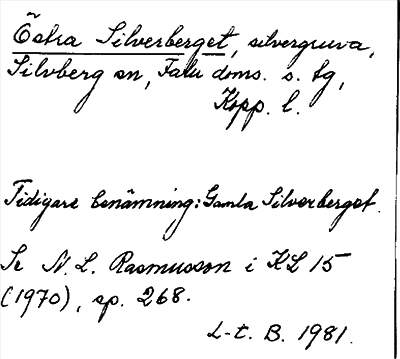 Östra Silverberget, silvergruva,
Silvberg sn, Falu doms. s. tg,
Kopp. l.
Tidigare benämning: Gamla Silverberget.
Se N. L. Rasmusson i KL 15
(1970), sp. 268.
L-t. B. 1981.